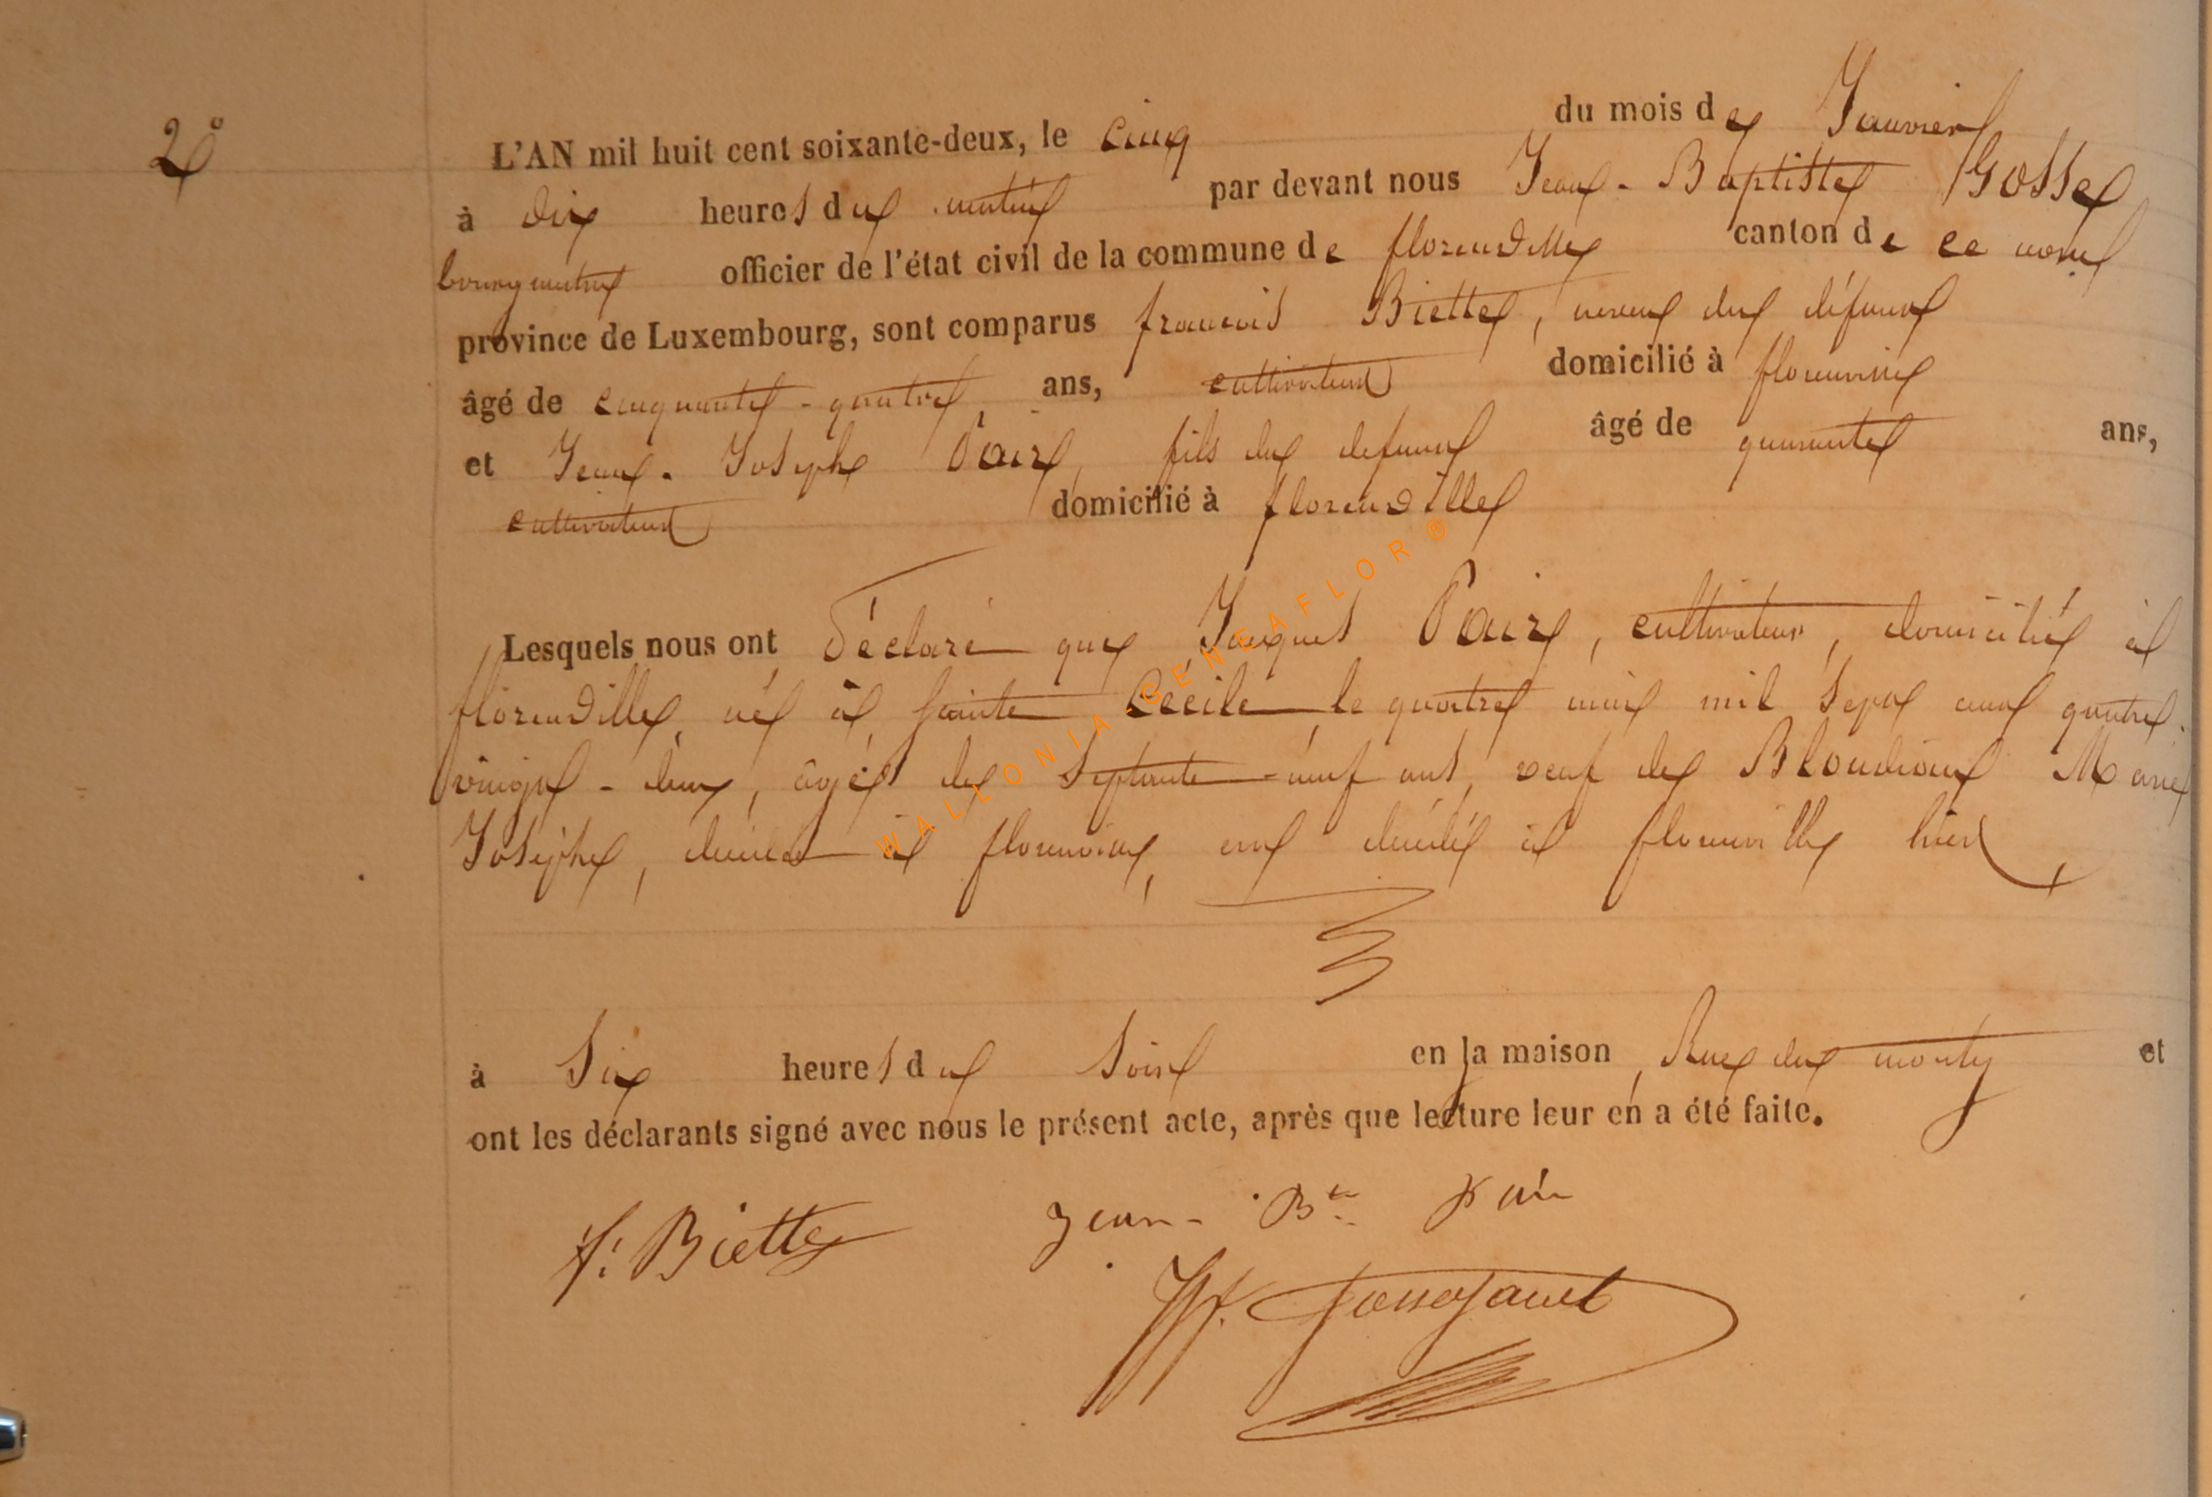 2º
L'AN mil huit cent soixante-deux, le cinq du mois de Janvier
à dix heures du matin par devant nous Jean-Baptiste Gosse
bourgmestre officier de l'état civil de la commune de florenville canton de ce nom
province de Luxembourg, sont comparus francois Biette, neveu du défunt
âgé de cinquante-quatre ans, cultivateur domicilié à florenville
et Jean-Joseph Pairé, fils du defunt âgé de quarante ans,
cultivateur domicilié à florenville
Lesquels nous ont déclaré que Jacques Pairé, cultivateur, domicilié à
florenville, né à Sainte Cécile, le quatre mai mil sept cent quatre-
vingt-deux, âgés de septante-neuf ans, veuf de Blondiaux Marie
Josèphe, décédé à florenville, est décédé à florenville hier,
à six heures du soir en sa maison, Rue du monty et
ont les déclarants signé avec nous le présent acte, après que lecture leur en a été faite.
f: Biette Jean-Bte pair
WALLONIA-GÉNÉAFLOR®